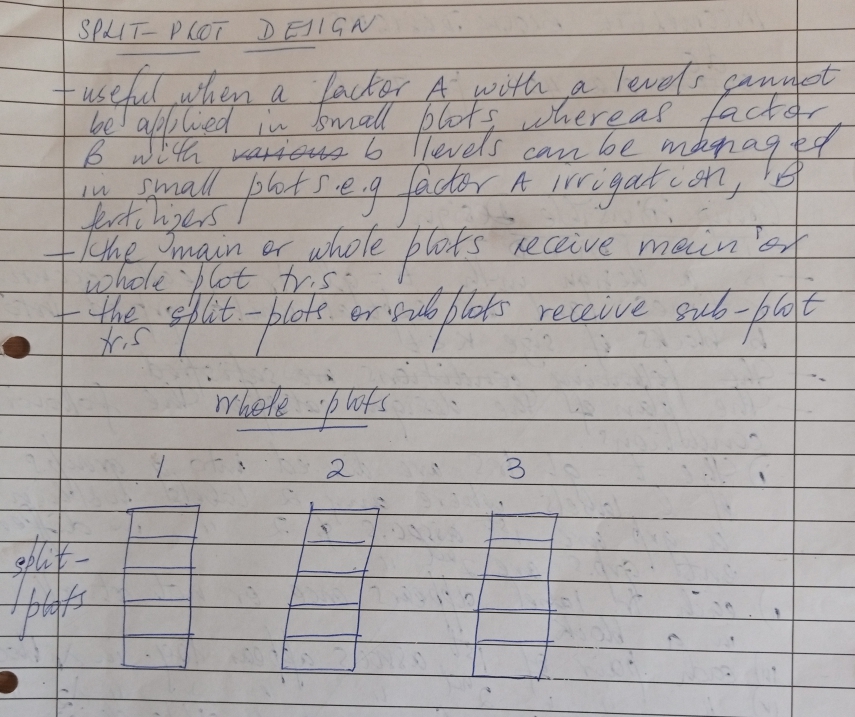 SPLIT-PLOT DESIGN
- useful when a factor A with a levels cannot
be applied in small plots whereas factor
B with various b levels can be managed
in small plots e.g factor A irrigation, B
fertilizers
- the main or whole plots receive main or
whole plot tr.s
- the split-plots or subplots receive sub-plot
tr.s
whole plots
1 2 3
split-
plots